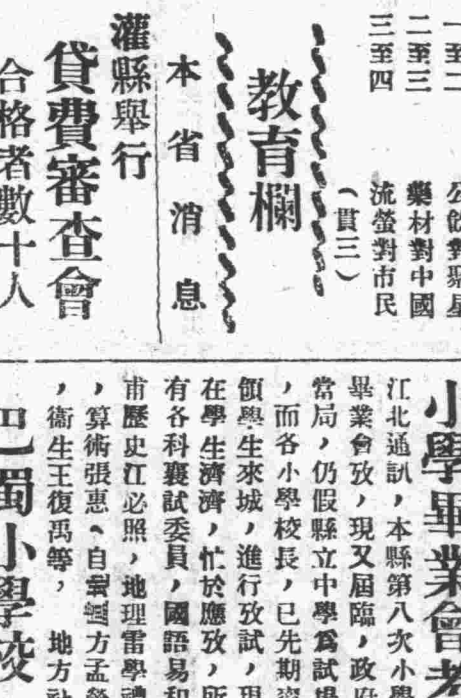 一至二
二至三
三至四
公餘對聚星
藥材對中國
流螢對市民
（貫三）
教育欄
本省消息
灌縣舉行
貸費審查會
合格者數十人
小學畢業會考
江北通訊，本縣第八次小學
畢業會攷，現又屆臨，政府
當局，仍假縣立中學爲試場
，而各小學校長，已先期
領學生來城，進行攷試，現
在學生濟濟，忙於應攷，所
有各科襄試委員，國語易和
甫歷史江必照，地理雷學禮
，算術張惠、自然方孟
，衞生王復禹等，地方
巴蜀小學校